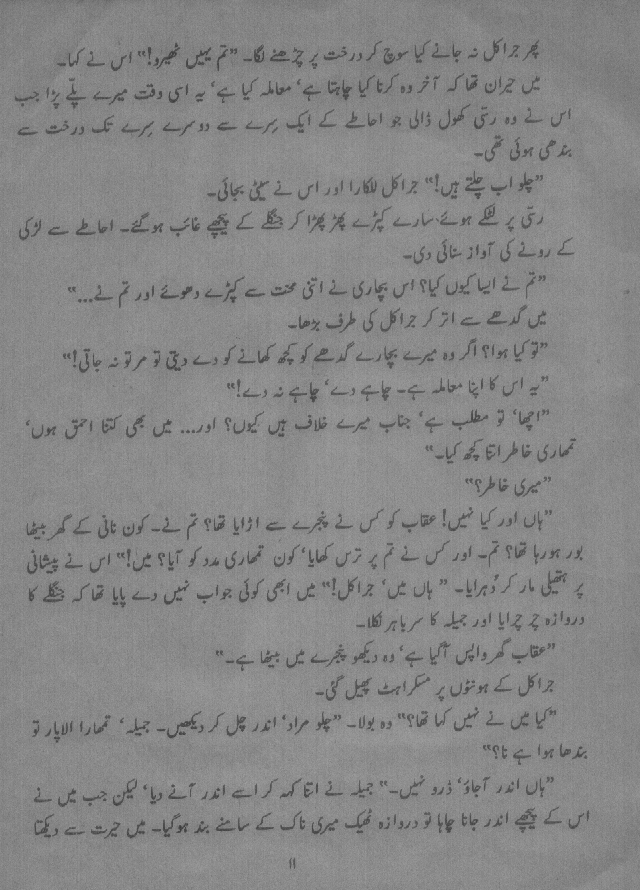 پھر جراکل نہ جانے کیا سوچ کر درخت پر چڑھنے لگا۔ ”تم یہیں ٹھہرو!“ اس نے کہا۔
میں حیران تھا کہ آخر وہ کرنا کیا چاہتا ہے‘ معاملہ کیا ہے‘ یہ اسی وقت میرے پلّے پڑا جب
اس نے وہ رسّی کھول ڈالی جو احاطے کے ایک سِرے سے دوسرے سِرے تک درخت سے
بندھی ہوئی تھی۔
”چلو اب چلتے ہیں!“ جراکل للکارا اور اس نے سیٹی بجائی۔
رسّی پر لٹکے ہوئے سارے کپڑے پھڑپھڑا کر جنگلے کے پیچھے غائب ہوگئے۔ احاطے سے لڑکی
کے رونے کی آواز سنائی دی۔
”تم نے ایسا کیوں کیا؟ اس بچاری نے اتنی محنت سے کپڑے دھوئے اور تم نے...“
میں گدھے سے اتر کر جراکل کی طرف بڑھا۔
”تو کیا ہوا؟ اگر وہ میرے بچارے گدھے کو کچھ کھانے کو دے دیتی تو مر تو نہ جاتی!“
”یہ اس کا اپنا معاملہ ہے۔ چاہے دے‘ چاہے نہ دے!“
”اچھا‘ تو مطلب ہے‘ جناب میرے خلاف ہیں کیوں؟ اور... میں بھی کتنا احمق ہوں‘
تمھاری خاطر اتنا کچھ کیا۔“
”میری خاطر؟“
”ہاں اور کیا نہیں! عقاب کو کس نے پنجرے سے اڑایا تھا؟ تم نے۔ کون نانی کے گھر بیٹھا
بور ہورہا تھا؟ تم۔ اور کس نے تم پر ترس کھایا‘ کون تمھاری مدد کو آیا؟ میں!“ اس نے پیشانی
پر ہتھیلی مار کر دُہرایا۔ ”ہاں میں‘ جراکل!“ میں ابھی کوئی جواب نہیں دے پایا تھا کہ جنگلے کا
دروازہ چرچرایا اور جمیلہ کا سر باہر نکلا۔
”عقاب گھر واپس آگیا ہے‘ وہ دیکھو پنجرے میں بیٹھا ہے۔“
جراکل کے ہونٹوں پر مسکراہٹ پھیل گئی۔
”کیا میں نے نہیں کہا تھا؟“ وہ بولا۔ ”چلو مراد‘ اندر چل کر دیکھیں۔ جمیلہ‘ تمھارا الاپار تو
بندھا ہوا ہے نا؟“
”ہاں اندر آجاؤ‘ ڈرو نہیں۔“ جمیلہ نے اتنا کہہ کر اسے اندر آنے دیا‘ لیکن جب میں نے
اس کے پیچھے اندر جانا چاہا تو دروازہ ٹھیک میری ناک کے سامنے بند ہوگیا۔ میں حیرت سے دیکھتا
۱۱